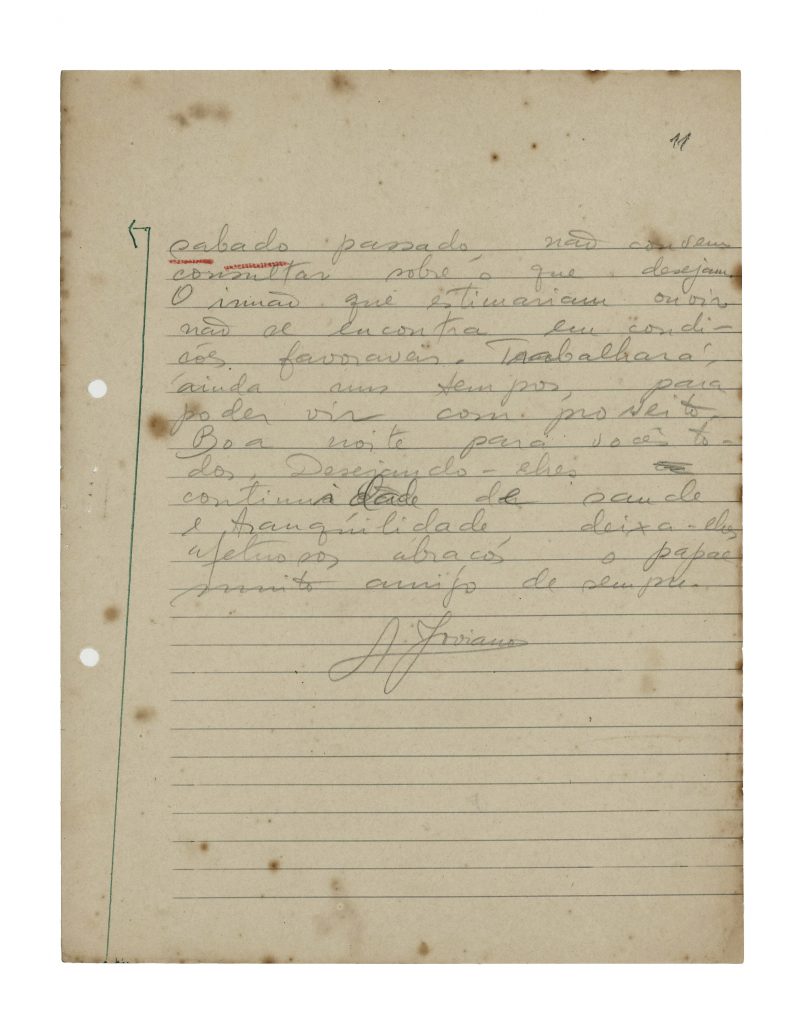 11
sabado passado, não convem
consultar sobre o que desejam.
O irmão que estimariam ouvir
não se encontra em condi-
cões favoraveis. Trabalhará,
ainda uns tempos, para
poder vir com proveito.
Boa noite para vocês to-
dos. Desejando-lhes
continuidade de saude
e tranquilidade deixa-lhes
afetuosos abraços o papae
muito amigo de sempre.
A. Joviano